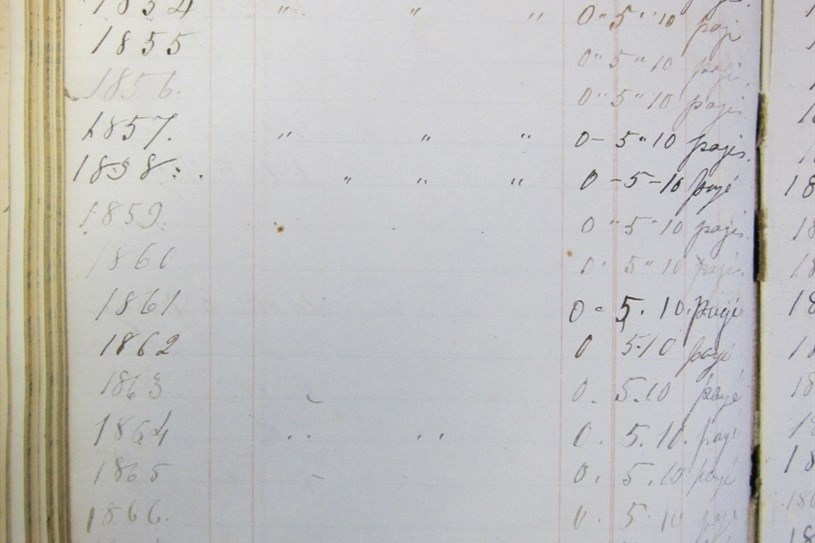 1854 " " " 0 " 5 " 10 payé
1855 0 " 5 " 10 payé
1856. 0 " 5 " 10 payé.
1857. " " " 0 - 5 " 10 payés.
1858 : . " " " 0 - 5 - 10 payé
1859. 0 " 5 " 10 payés.
1860 0 " 5 " 10 payés.
1861 0 - 5 . 10 . payé
1862 0 5-10 payé
1863 0 . 5.10 payé
1864 " " 0 . 5.10. payé
1865 0 . 5.10 payé
1866. 0 . 5 . 10 payé